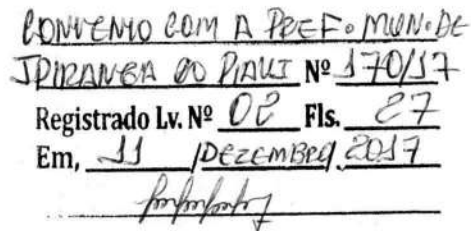 CONVENIO COM A PREF. MUN. DE
IPIRANGA DO PIAUI Nº 170/17
Registrado Lv. Nº 02 Fls. 27
Em, 11 /DEZEMBRO/ 2017